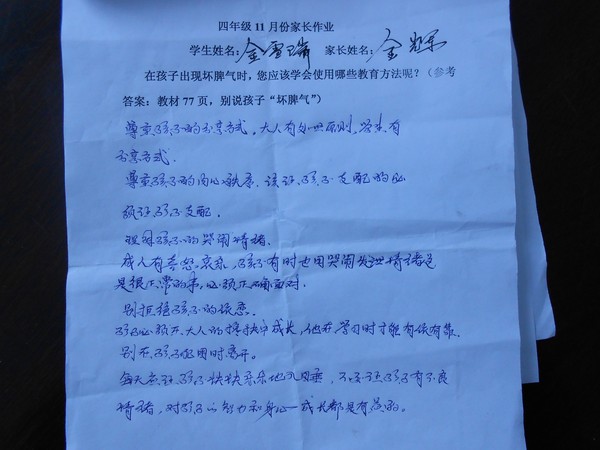 四年级11月份家长作业
学生姓名:金雪瑞 家长姓名:金
在孩子出现坏脾气时,您应该学会使用哪些教育方法呢?(参考
答案:教材77页,别说孩子“坏脾气”)
尊重孩子的方式,大人有原则,学生有
方式.
尊重孩子的内心秩序.该让孩子支配的必
须让孩子支配.
理解孩子的哭闹情绪.
成人有喜怒哀乐,孩子有时也用哭闹处理情绪这
是很正常的事,必须正确面对.
别拒绝孩子的依恋.
孩子必须在大人的拥抱中成长,他在学习时才能有依有靠.
别在孩子假困时离开。
每天应让孩子快快乐乐地入睡,不要让孩子有不良
情绪,对孩子的智力和身心成长都是有益的。